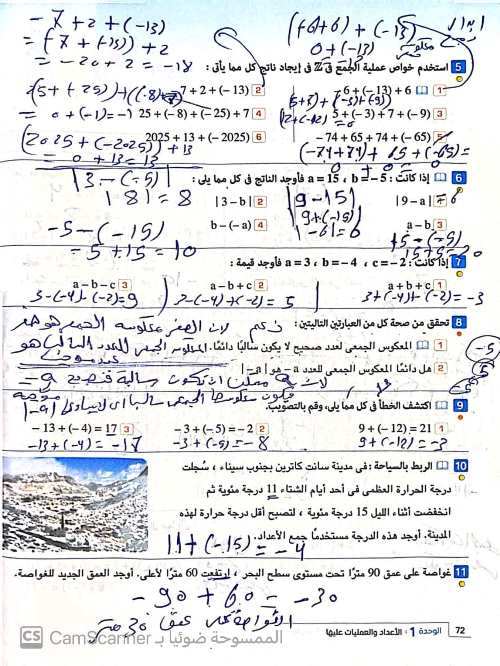 -7 + 2 + (-13)
= (-7 + (-13)) + 2
= -20 + 2 = -18
(+6+6) + (-13)
0 + (-13)
5 استخدم خواص عملية الجمع فى Z فى إيجاد ناتج كل مما يأتى :
1 -6 + (-13) + 6
2 -7 + 2 + (-13)
3 5 + (-3) + 7 + (-9)
4 25 + (-8) + (-25) + 7
= 0 + (-1) = -1
5 -74 + 65 + 74 + (-65)
6 2025 + 13 + (-2025)
(2025 + (-2025)) + 13
= 0 + 13 = 13
6 إذا كانت : a = 15 ، b = -5 فأوجد الناتج فى كل مما يلى :
|3 - (-5)|
|8| = 8
1 |9 - a|
|9 - 15|
|9 + (-15)|
|-6| = 6
2 |3 - b|
3 a - b
15 - (-5)
15 + 5 = 20
4 b - (-a)
-5 - (-15)
= -5 + 15 = 10
7 إذا كانت : a = 3 ، b = -4 ، c = -2 فأوجد قيمة :
1 a + b + c
2 a - b + c
3 a - b - c
3 + (-4) + (-2) = -3
3 - (-4) + (-2) = 5
3 - (-4) - (-2) = 9
8 تحقق من صحة كل من العبارتين التاليتين :
1 المعكوس الجمعى لعدد صحيح لا يكون سالبًا دائمًا.
2 هل دائمًا المعكوس الجمعى للعدد a- هو |a-|
9 اكتشف الخطأ فى كل مما يلى، وقم بالتصويب.
1 9 + (-12) = 21
2 -3 + (-5) = -2
3 -13 + (-4) = 17
9 + (-12) = -3
-3 + (-5) = -8
-13 + (-4) = -17
10 الربط بالسياحة : فى مدينة سانت كاترين بجنوب سيناء ، سُجلت
درجة الحرارة العظمى فى أحد أيام الشتاء 11 درجة مئوية ثم
انخفضت أثناء الليل 15 درجة مئوية ، لتصبح أقل درجة حرارة لهذه
المدينة. أوجد هذه الدرجة مستخدمًا جمع الأعداد.
11 + (-15) = -4
11 غواصة على عمق 90 مترًا تحت مستوى سطح البحر ، ارتفعت 60 مترًا لأعلى. أوجد العمق الجديد للغواصة.
-90 + 60 = -30
الغواصة على عمق 30 متر
72 الوحدة 1 : الأعداد والعمليات عليها
الممسوحة ضوئيا بـ CamScanner
CS